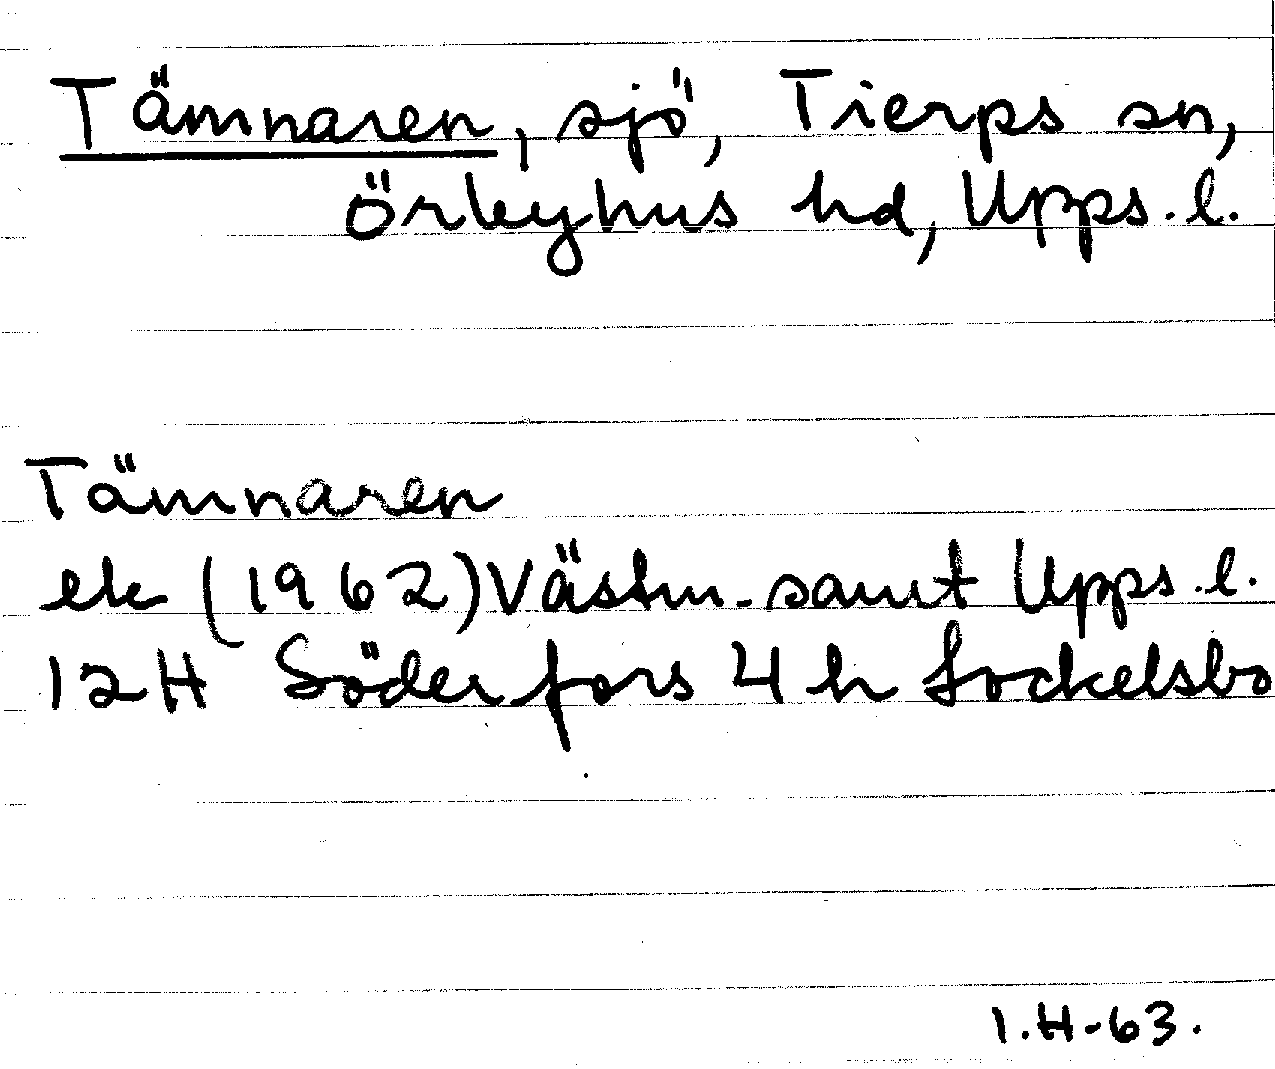 Tämnaren, sjö, Tierps sn,
Örbyhus hd, Upps. l.
Tämnaren
ek (1962) Västm. samt Upps. l.
12H Söderfors 4 h Sockelsbo
1.H-63.